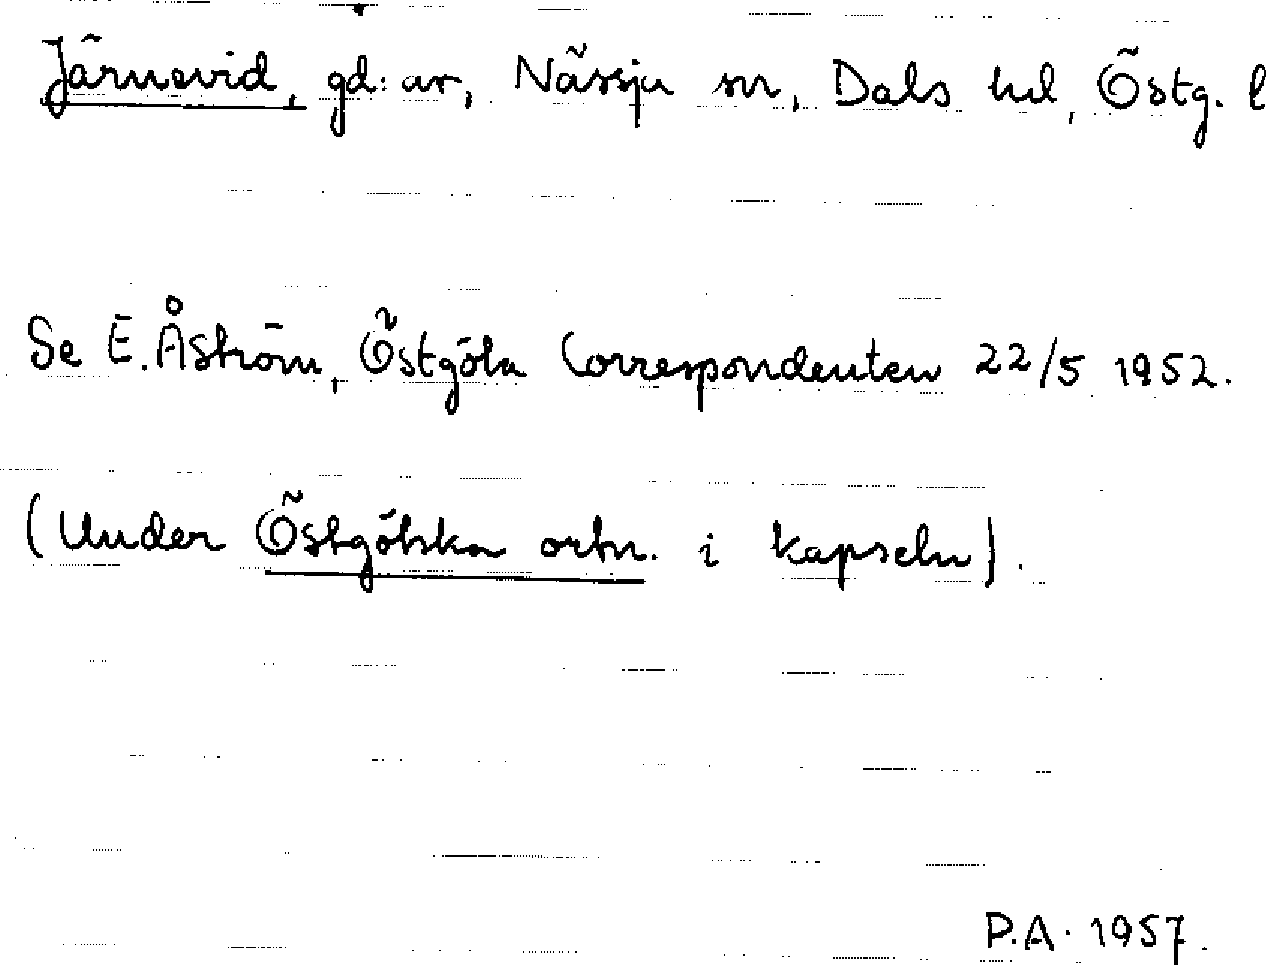 Järnevid, gd:ar, Nässja sn, Dals hd, Östg. l
Se E. Åström, Östgöta Correspondenten 22/5 1952.
(Under Östgötska ortn. i kapseln).
P.A. 1957.